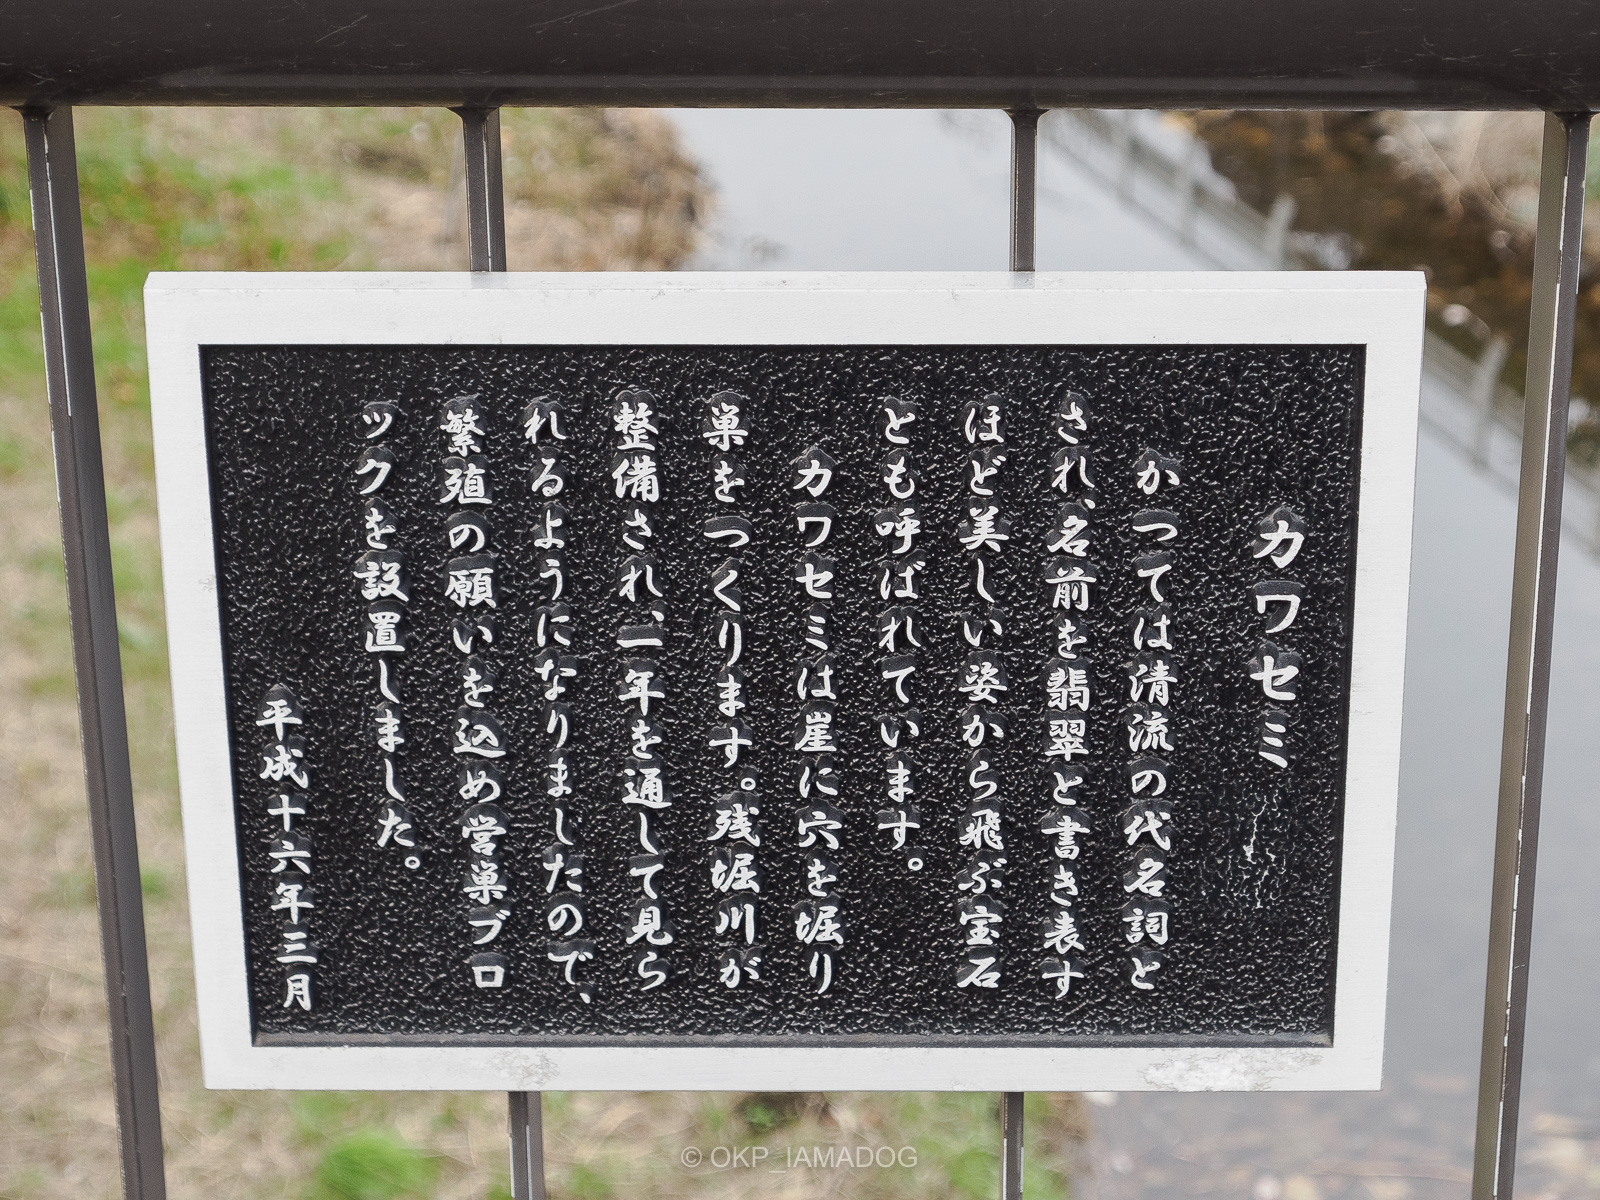 カワセミ
かつては清流の代名詞と
され、名前を翡翠と書き表す
ほど美しい姿から飛ぶ宝石
とも呼ばれています。
カワセミは崖に穴を堀り
巣をつくります。残堀川が
整備され、一年を通して見ら
れるようになりましたので、
繁殖の願いを込め営巣ブロ
ックを設置しました。
平成十六年三月
© OKP_IAMADOG